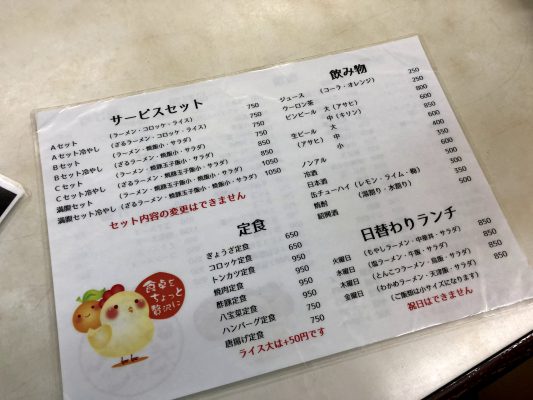 サービスセット
Aセット (ラーメン・コロッケ・ライス) 750
Aセット冷やし (ざるラーメン・コロッケ・ライス) 750
Bセット (ラーメン・焼飯小・サラダ) 750
Bセット冷やし (ざるラーメン・焼飯小・サラダ) 750
Cセット (ラーメン・焼豚玉子飯小・サラダ) 850
Cセット冷やし (ざるラーメン・焼豚玉子飯小・サラダ) 850
満腹セット (ラーメン・焼豚玉子飯小・焼飯小・サラダ) 1050
満腹セット冷やし (ざるラーメン・焼豚玉子飯小・焼飯小・サラダ) 1050
セット内容の変更はできません
飲み物
ジュース (コーラ・オレンジ) 250
ウーロン茶 250
ビンビール 大 (アサヒ) 800
中 (キリン) 600
生ビール 大 850
(アサヒ) 中 600
小 400
ノンアル 350
冷酒 600
日本酒 500
缶チューハイ (レモン・ライム・梅) 300
焼酎 (湯割り・水割り) 350
紹興酒 500
定食
ぎょうざ定食 650
コロッケ定食 650
トンカツ定食 950
焼肉定食 950
酢豚定食 950
八宝菜定食 950
ハンバーグ定食 750
唐揚げ定食 750
ライス大は+50円です
日替わりランチ
火曜日 (もやしラーメン・中華丼・サラダ) 850
水曜日 (塩ラーメン・牛飯・サラダ) 850
木曜日 (とんこつラーメン・鳥飯・サラダ) 850
金曜日 (わかめラーメン・天津飯・サラダ) 850
(ご飯類は小サイズになります)
祝日はできません
食卓を
ちょっと
贅沢に